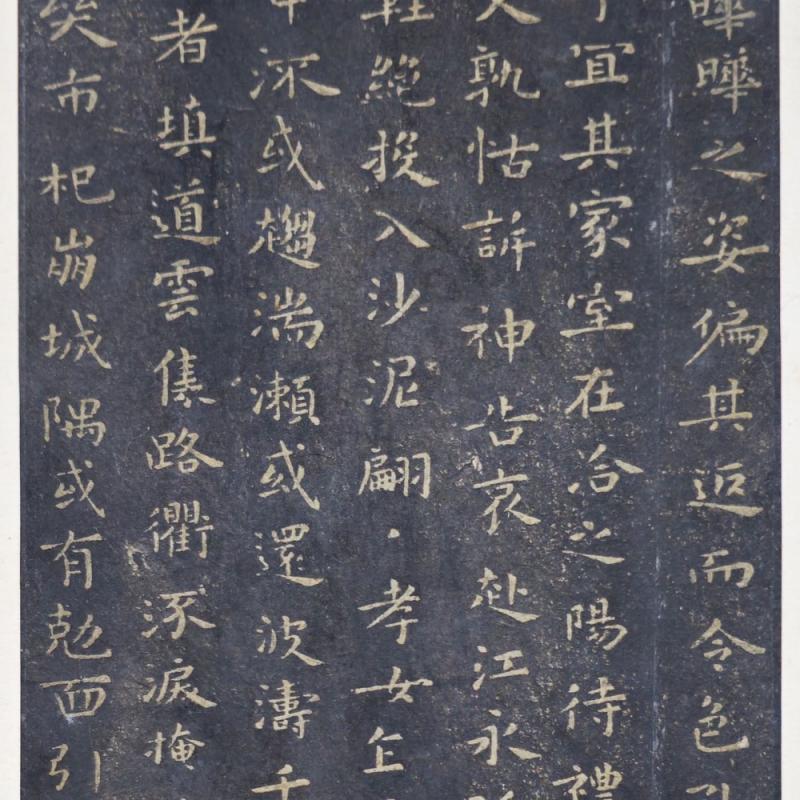 曄曄之姿偏其返而令色孔
冝其家室在洽之陽待禮
父孰怙訴神告哀赴江永
輕絶投入沙泥翩・孝女乍
中流或趨湍瀨或還波濤千
者填道雲集路衢流淚掩
哭市杞崩城隅或有勀面引